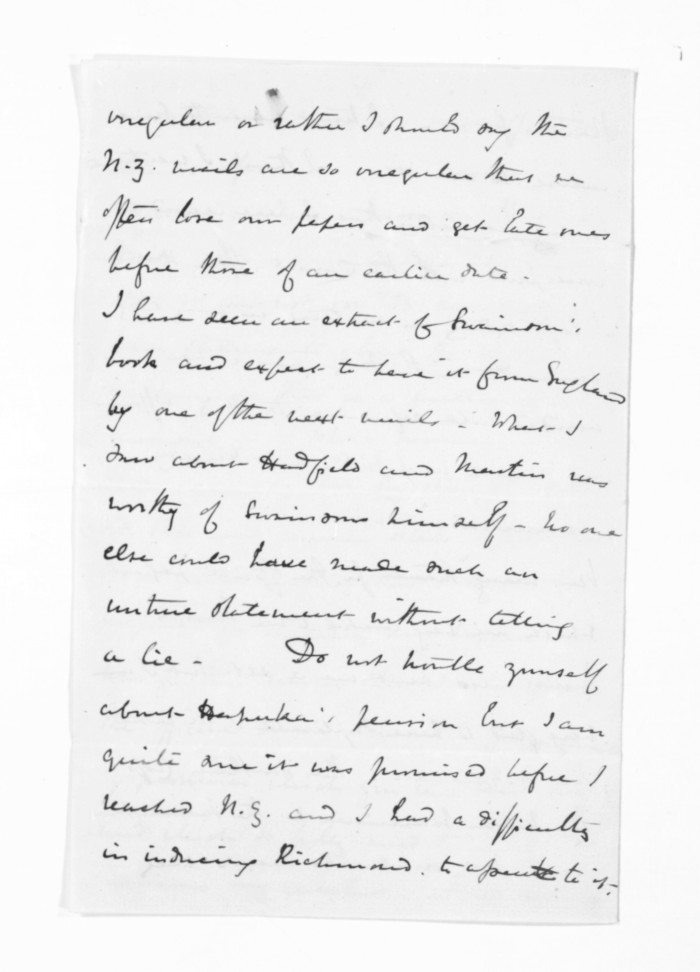 irregular or rather I should say the
N.Z. mails are so irregular that we
often lose our papers and get late ones
before those of an earlier date -
I have seen an extract of Swainson's
book and expect to have it from England
by one of the next mails - What I
saw about Hadfield and Martin was
worthy of Swainson himself - No one
else could have made such an
untrue statement without telling
a lie - Do not trouble yourself
about Hapuka's pension but I am
quite sure it was promised before I
reached N.Z. and I had a difficulty
in inducing Richmond to assent to it.